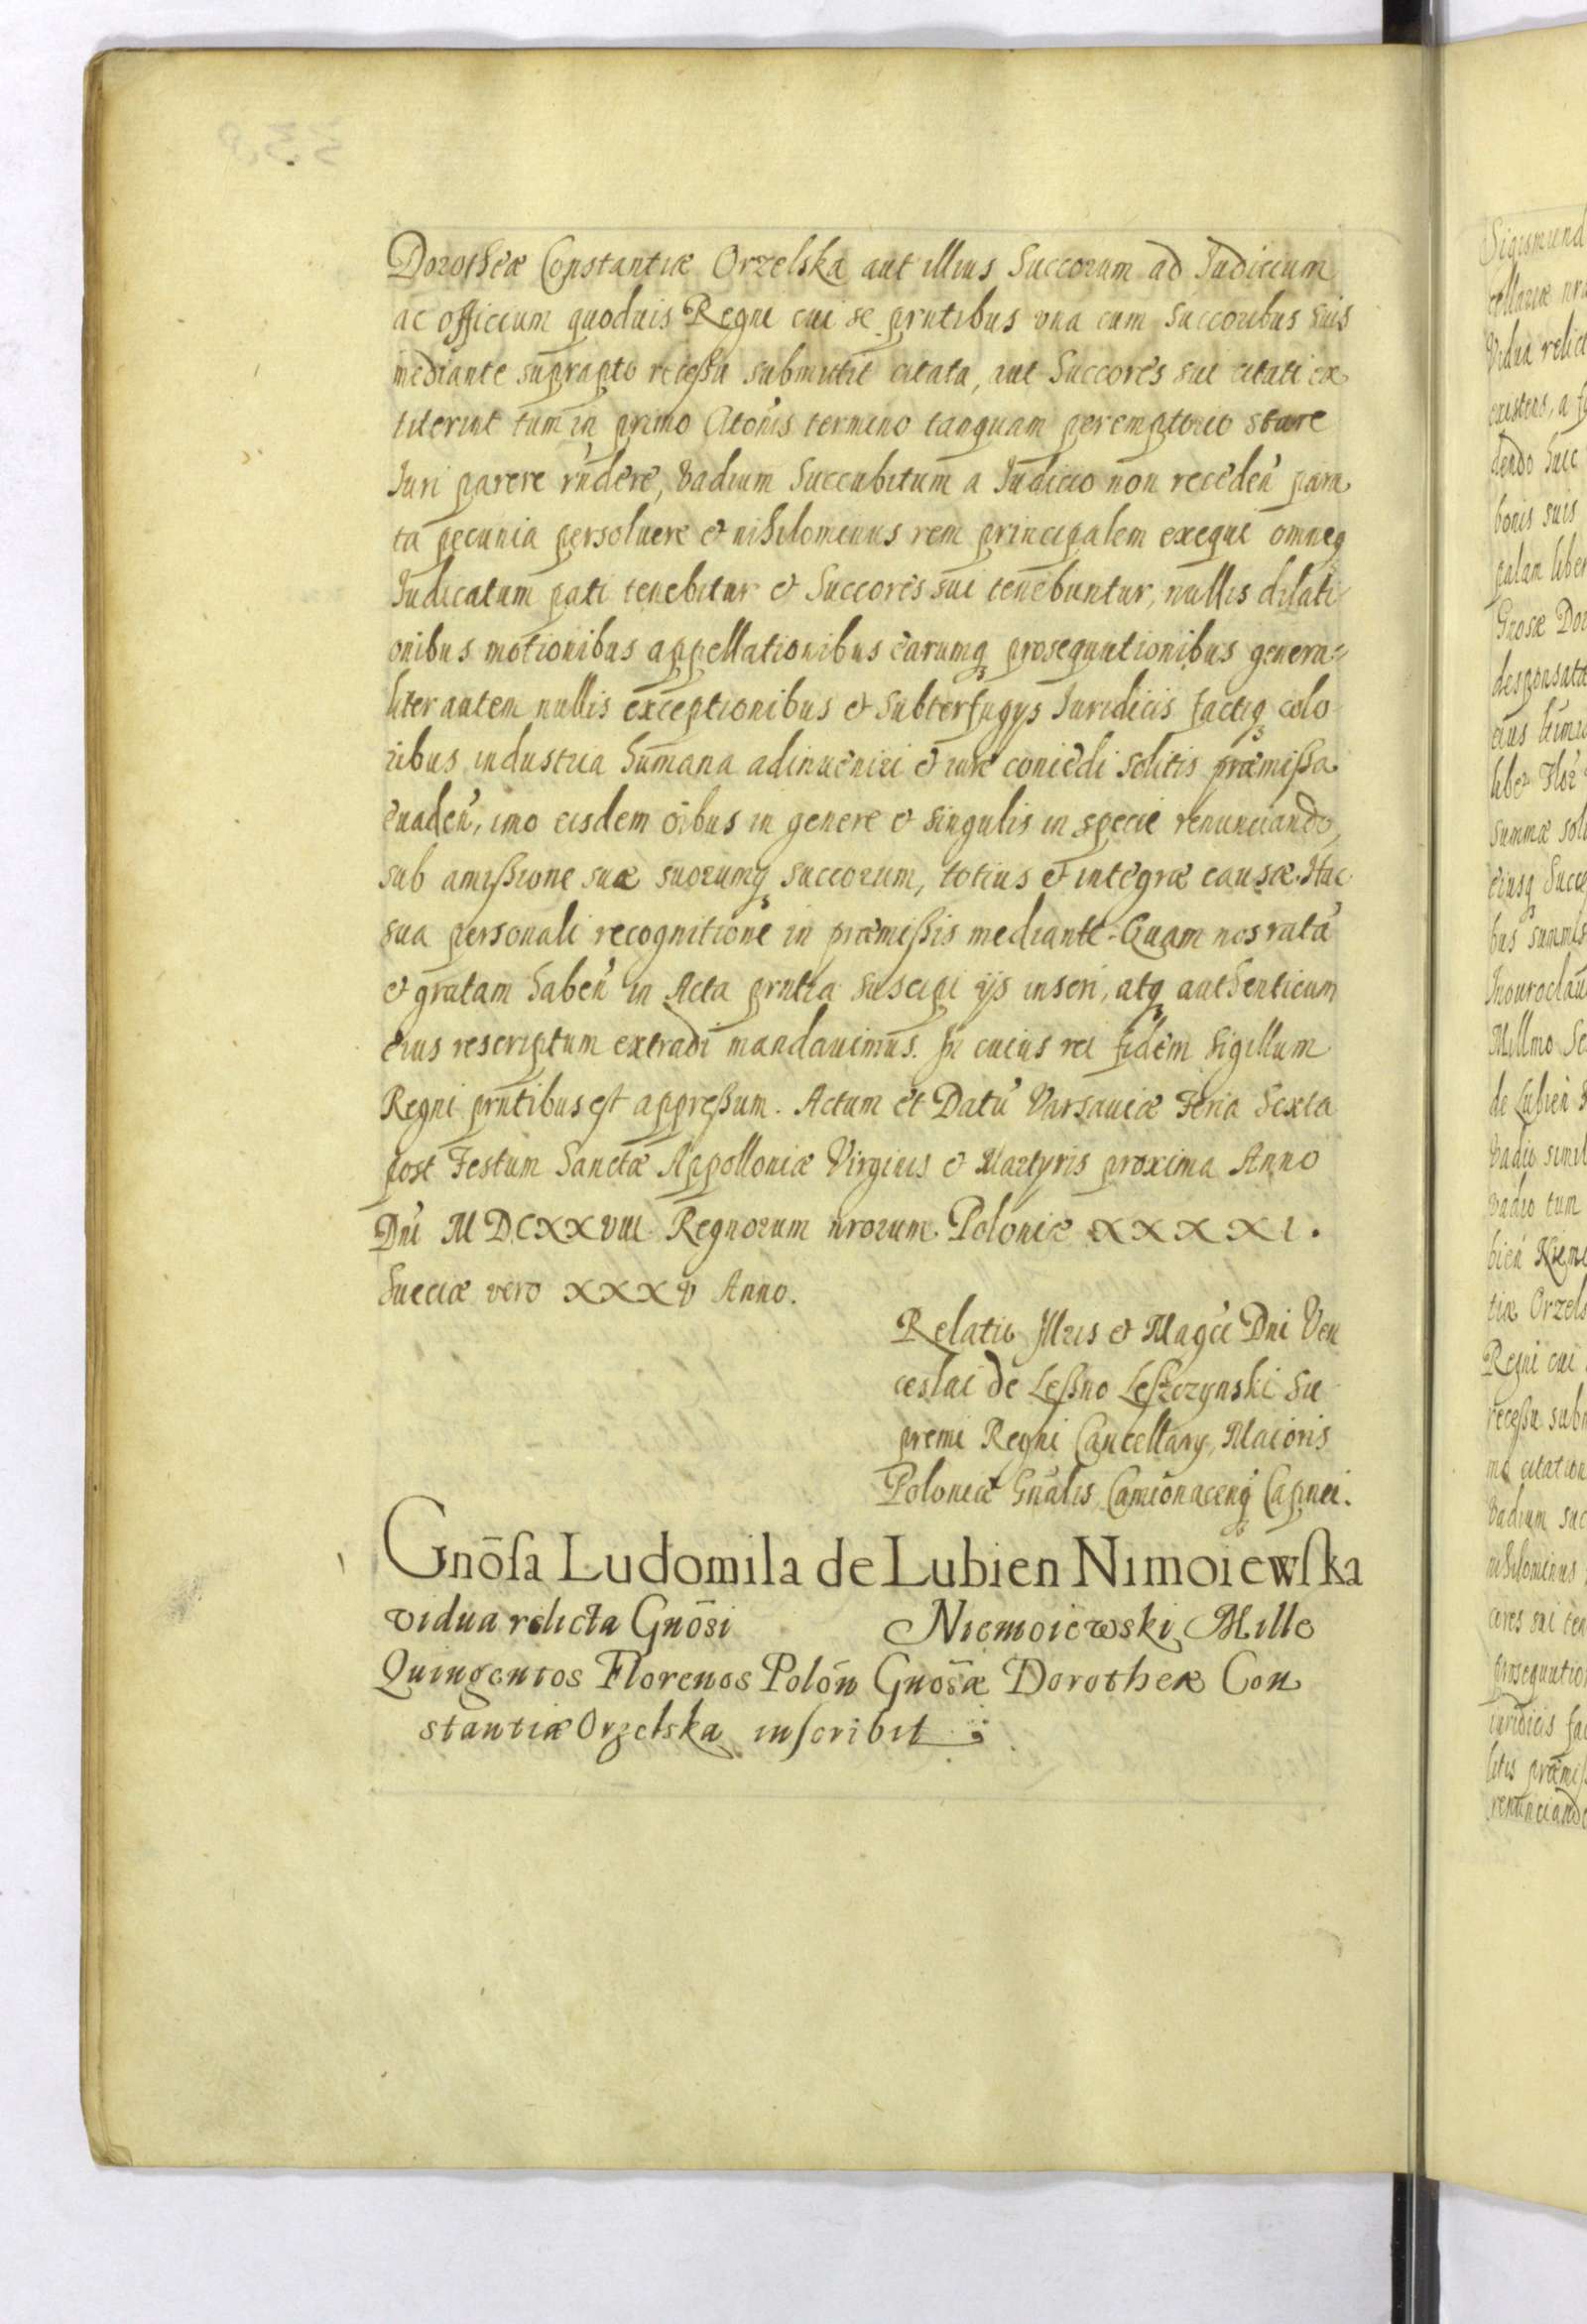 Dorotheæ Constantiæ Orzelska aut illius Succorum ad Judicium
ac officium quoduis Regni cui se prntibus una cum Succoribus suis
mediante suprapto recessu submittit citata, aut Succores sui citati ex
titerint tum in primo Citonis termino tanquam peremptorio stare
Juri parere rndere, vadium Succubitum a Judicio non receden para
ta pecunia persoluere et nihilominus rem principalem exequi omneq
Judicatum pati tenebitur et Succores sui tenebuntur, nullis dilati
onibus motionibus appellationibus earumq prosequutionibus genera=
liter autem nullis exceptionibus et subterfugys Juridicis factiq colo
ribus industria humana adinueniri et iure coniedi solitis præmissa
euaden, imo eisdem oibus in genere et singulis in specie renunciando,
sub amissione suæ suorumq succorum, totius et integræ causæ. Hac
sua personali recognitione in præmissis mediante. Quam nos rata
et gratam haben in Acta prntia suscipi ijs inseri, atq authenticum
eius rescriptum extradi mandauimus. In cuius rei fidem Sigillum
Regni prntibus est appressum. Actum et Datu Varsauiæ Feria Sexta
post Festum Sanctæ Appolloniæ Virginis et Martyris proxima Anno
Dni MDCXXVIII Regnorum nrorum Poloniæ XXXXI.
Sueciæ vero XXXV Anno.
Relatio Illris et Magci Dni Ven
ceslai de Lessno Leszczynski Su
premi Regni Cancellarij, Maioris
Poloniæ Gnalis Camionacenq Capnei.
Gnōsa Ludomila de Lubien Nimoiewska
vidua relicta Gnōsi Niemoiewski Mille
Quingentos Florenos Polōn Gnōsæ Dorotheæ Con
stantiæ Orzelska inscribit
Sigismund
Vidua relict
existens, a
dendo Succ
bonis suis
palam liber
Gnosæ Dor
desponsata
summæ sol
eiusq Succe
bus summis
Inouroclau
Millmo
de Lubien
vadio simil
vadio tum
bien Niemo
tiæ Orzels
Regni cui
recessu subm
mo citation
Vadium suc
nihilominus
cores sui ten
prosequutio
iuridicis fac
litis præmiss
renunciando